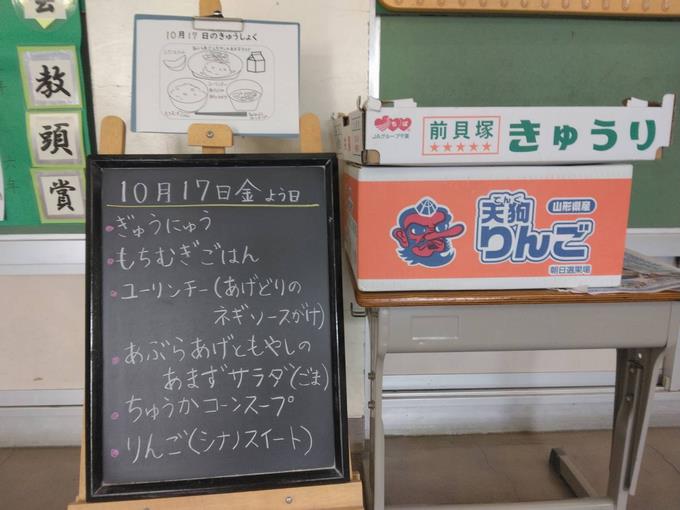 教
頭
賞
10月17日のきゅうしょく
10月17日金よう日
ぎゅうにゅう
もちむぎごはん
ユーリンチー(あげどりの
ネギソースがけ)
あぶらあげともやしの
あまずサラダ(ごま)
ちゅうかコーンスープ
りんご(シナノスイート)
JAグループ千葉
前貝塚
★★★★★
きゅうり
てんぐ
天狗
りんご
山形県産
朝日選果場